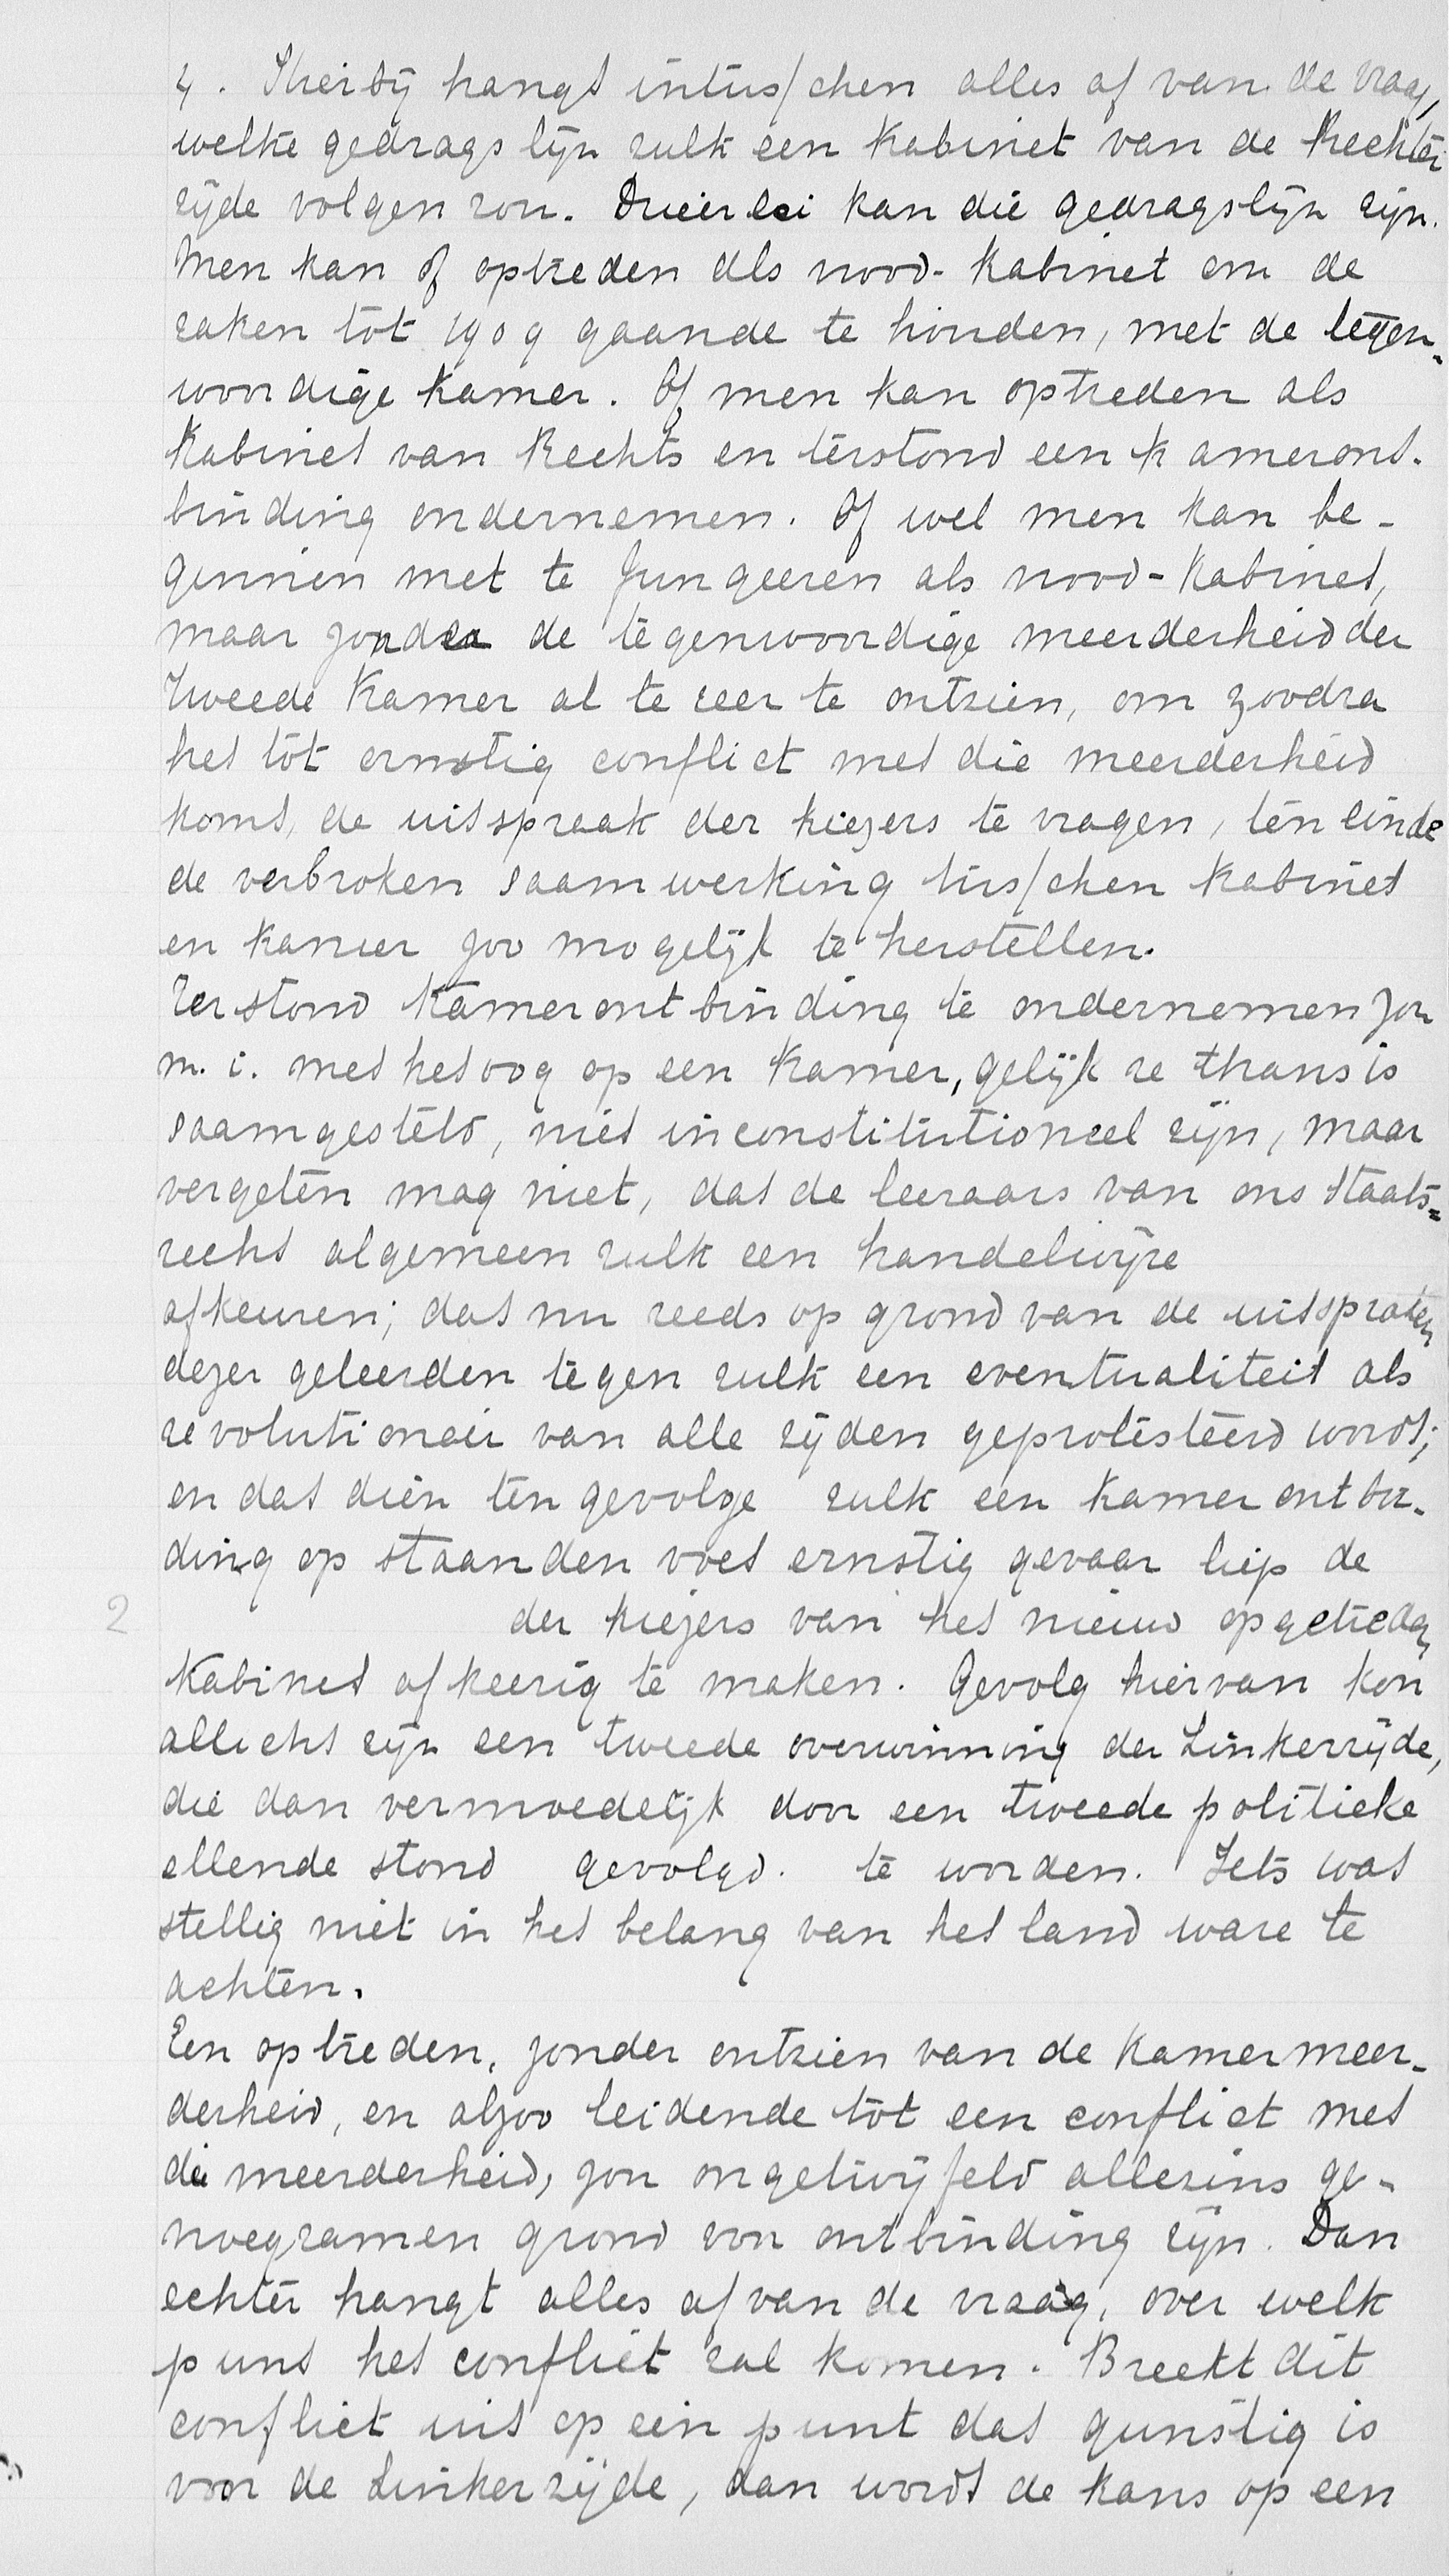 4. Hierbij hangt intusschen alles af van de vraag,
welke gedragslijn zulk een Kabinet van de Rechter
zijde volgen zou. Drieërlei kan die gedragslijn zijn.
Men kan of optreden als nood-Kabinet om de
zaken tot 1909 gaande te houden, met de tegen-
woordige Kamer. Of men kan optreden als
Kabinet van Rechts en terstond een Kameront-
binding ondernemen. Of wel men kan be-
ginnen met te fungeeren als nood-Kabinet,
maar zonder de tegenwoordige meerderheid der
Tweede Kamer al te zeer te ontzien, om zoodra
het tot ernstig conflict met die meerderheid
komt, de uitspraak der kiezers te vragen, ten einde
de verbroken saamwerking tusschen Kabinet
en Kamer zoo mogelijk te herstellen.
Terstond Kamerontbinding te ondernemen zou
m. i. met het oog op een Kamer, gelijk ze thans is
saamgesteld, niet inconstitutioneel zijn, maar
vergeten mag niet, dat de leeraars van ons Staats=
recht algemeen zulk een handelwijze
afkeuren; dat nu reeds op grond van de uitspraken
dezer geleerden tegen zulk een eventualiteit als
revolutionair van alle zijden geprotesteerd wordt;
en dat dien ten gevolge zulk een Kameront bin-
ding op staanden voet ernstig gevaar liep de
2 der kiezers van het nieuw opgetreden
Kabinet afkeerig te maken. Gevolg hiervan kon
allicht zijn een tweede overwinning der Linkerzijde,
die dan vermoedelijk door een tweede politieke
ellende stond gevolgd. te worden. Iets wat
stellig niet in het belang van het land ware te
achten.
Een optreden, zonder ontzien van de Kamermeer-
derheid, en alzoo leidende tot een conflict met
die meerderheid, zou ongetwijfeld alleszins ge-
noegzamen grond von ontbinding zijn. Dan
echter hangt alles af van de vraag, over welk
punt het conflict zal komen. Breekt dit
conflict uit op een punt dat gunstig is
voor de Linkerzijde, dan wordt de kans op een